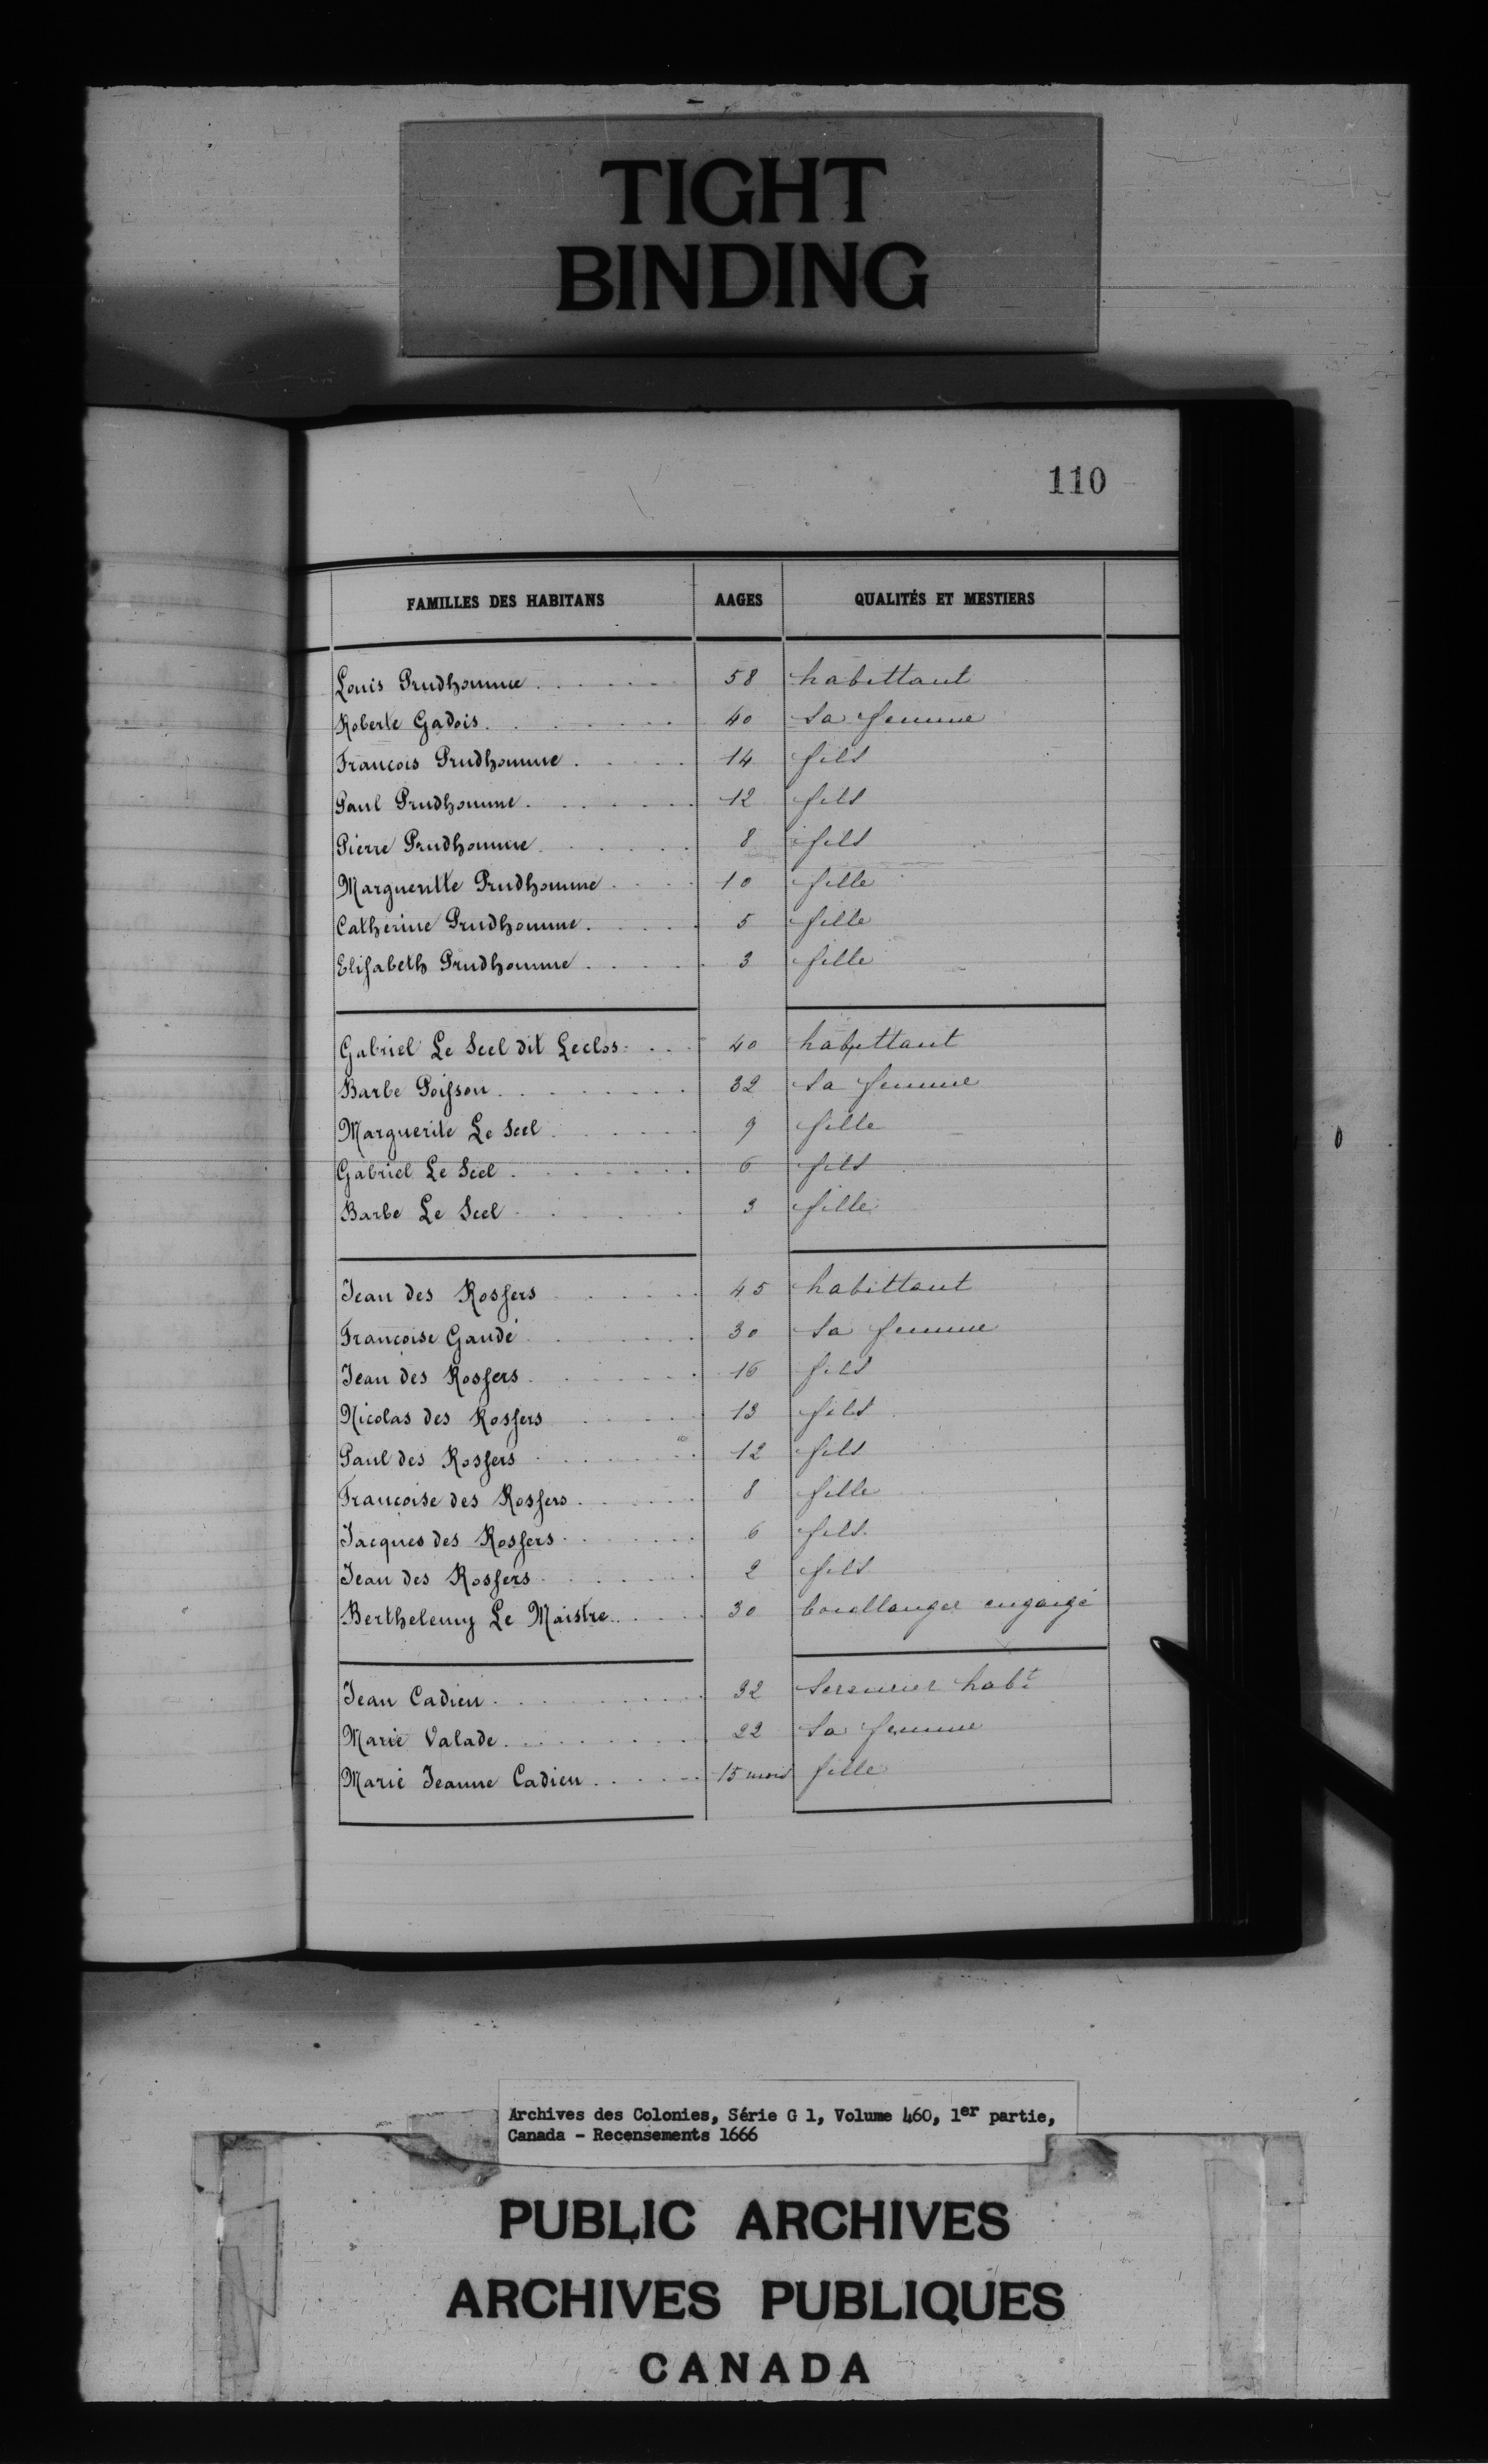 TIGHT
BINDING
110
FAMILLES DES HABITANS AAGES QUALITÉS ET MESTIERS
Louis Prudhomme 58 habittant
Roberte Gadois 40 sa femme
Francois Prudhomme 14 fils
Paul Prudhomme 12 fils
Pierre Prudhomme 8 fils
Margueritte Prudhomme 10 fille
Catherine Prudhomme 5 fille
Elisabeth Prudhomme 3 fille
Gabriel Le Seel dit Leclos 40 habittant
Barbe Poisson 32 sa femme
Marguerite Le Seel 9 fille
Gabriel Le Seel 6 fils
Barbe Le Seel 3 fille
Jean des Rossers 45 habittant
Francoise Gaudé 30 sa femme
Jean des Rossers 16 fils
Nicolas des Rossers 13 fils
Paul des Rossers 12 fils
Francoise des Rossers 8 fille
Jacques des Rossers 6 fils
Jean des Rossers 2 fils
Berthelemy Le Maistre 30 boullanger engaigé
Jean Cadieu 32 serrurier habt
Marie Valade 22 sa femme
Marie Jeanne Cadieu 15 mois fille
Archives des Colonies, Série G 1, Volume 460, 1er partie,
Canada - Recensements 1666
PUBLIC ARCHIVES
ARCHIVES PUBLIQUES
CANADA